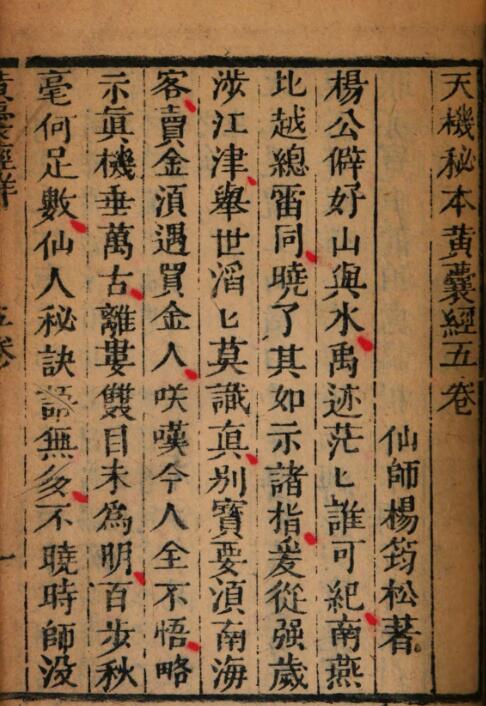 天機秘本黃囊經五卷
仙師楊筠松著
楊公僻好山與水禹迹茫匕誰可紀南燕
北越總雷同曉了其如示諸指爰從强歲
涉江津舉世滔匕莫識真别寶要湏南海
客賣金湏遇買金人咲嘆今人全不悟略
示眞機垂萬古離婁雙目未爲明百步秋
毫何足數仙人秘訣語無多不曉時師没